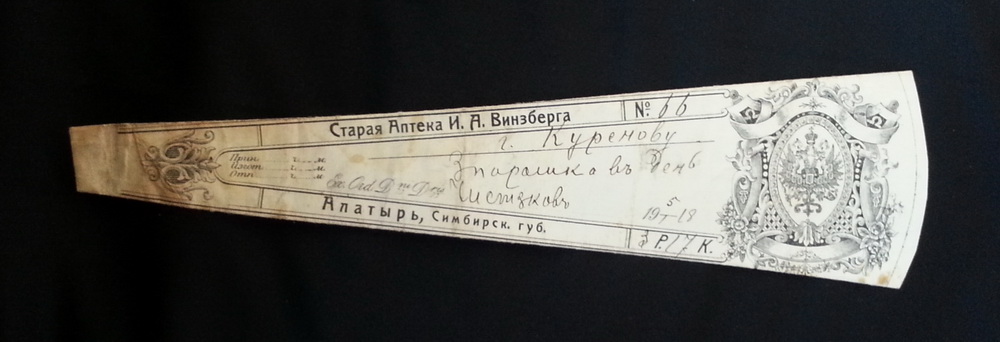 Старая Аптека И. А. Винзберга
№ 66
г. Куренову
Прин. ч. м.
Изгот. ч. м.
Отп. ч. м.
Ex. Ord. D-ris D-ry
3 порошка въ день
Чистяковъ
19 5/I 18
Алатырь, Симбирск. губ.
3 Р. 17 К.